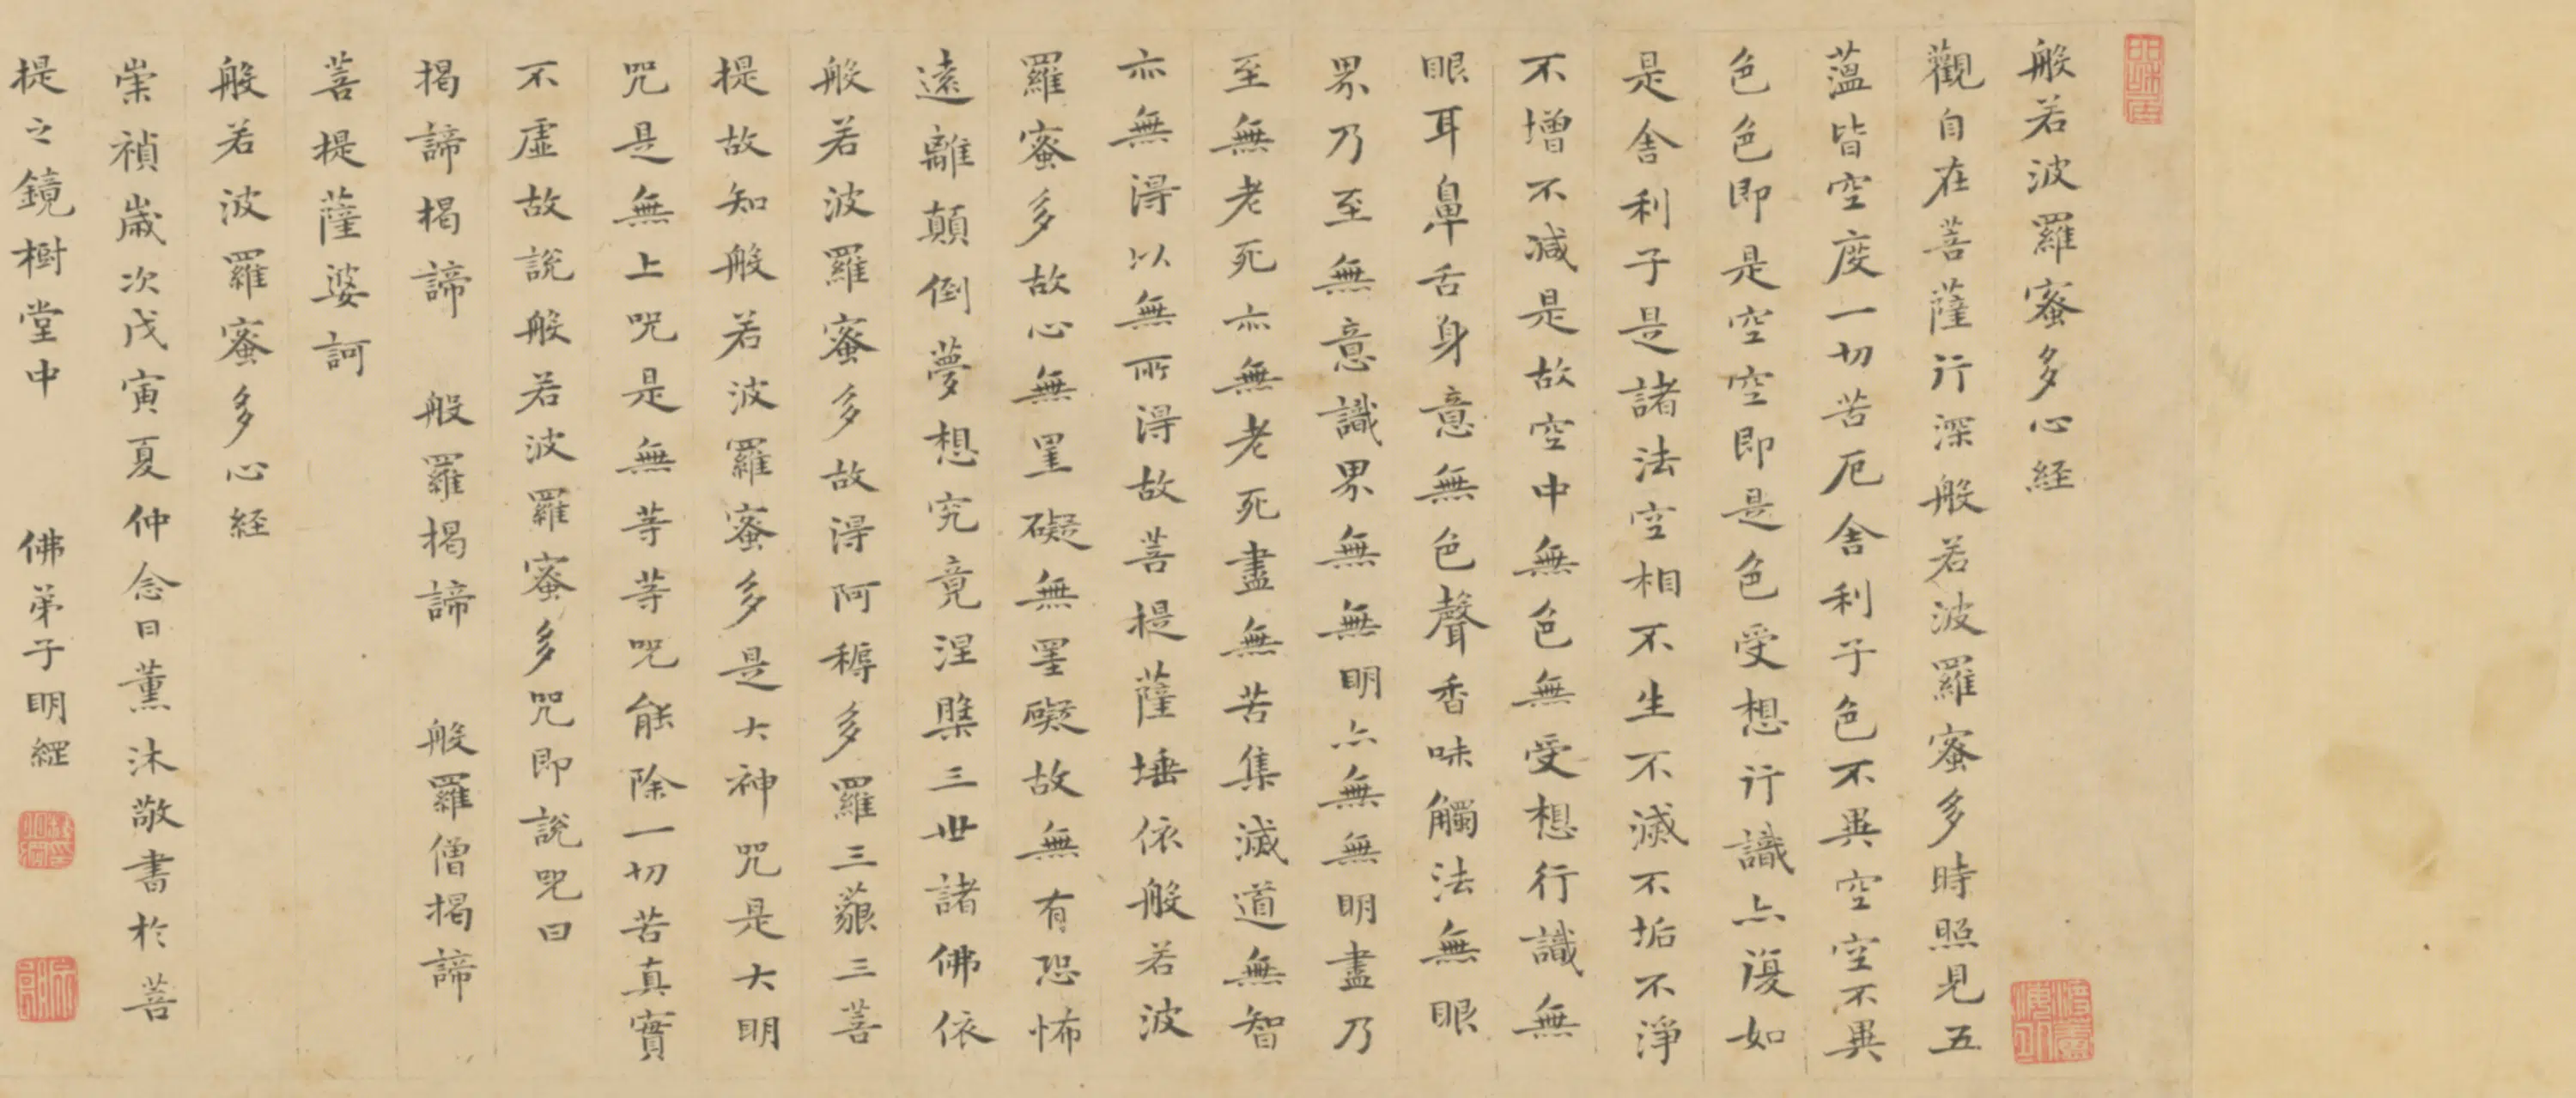 般若波羅蜜多心経
觀自在菩薩行深般若波羅蜜多時照見五
蕰皆空度一切苦厄舍利子色不異空空不異
色色即是空空即是色受想行識亦復如
是舍利子是諸法空相不生不滅不垢不淨
不增不減是故空中無色無受想行識無
眼耳鼻舌身意無色聲香味觸法無眼
界乃至無意識界無無明亦無無明盡乃
至無老死亦無老死盡無苦集滅道無智
亦無得以無所得故菩提薩埵依般若波
羅蜜多故心無罣礙無罣礙故無有恐怖
遠離顛倒夢想究竟涅槃三世諸佛依
般若波羅蜜多故得阿耨多羅三藐三菩
提故知般若波羅蜜多是大神咒是大明
咒是無上咒是無等等咒能除一切苦真實
不虛故說般若波羅蜜多咒即說咒曰
揭諦揭諦 般羅揭諦 般羅僧揭諦
菩提薩婆訶
般若波羅蜜多心経
崇禎歲次戊寅夏仲念日薰沐敬書於菩
提之鏡樹堂中 佛弟子明